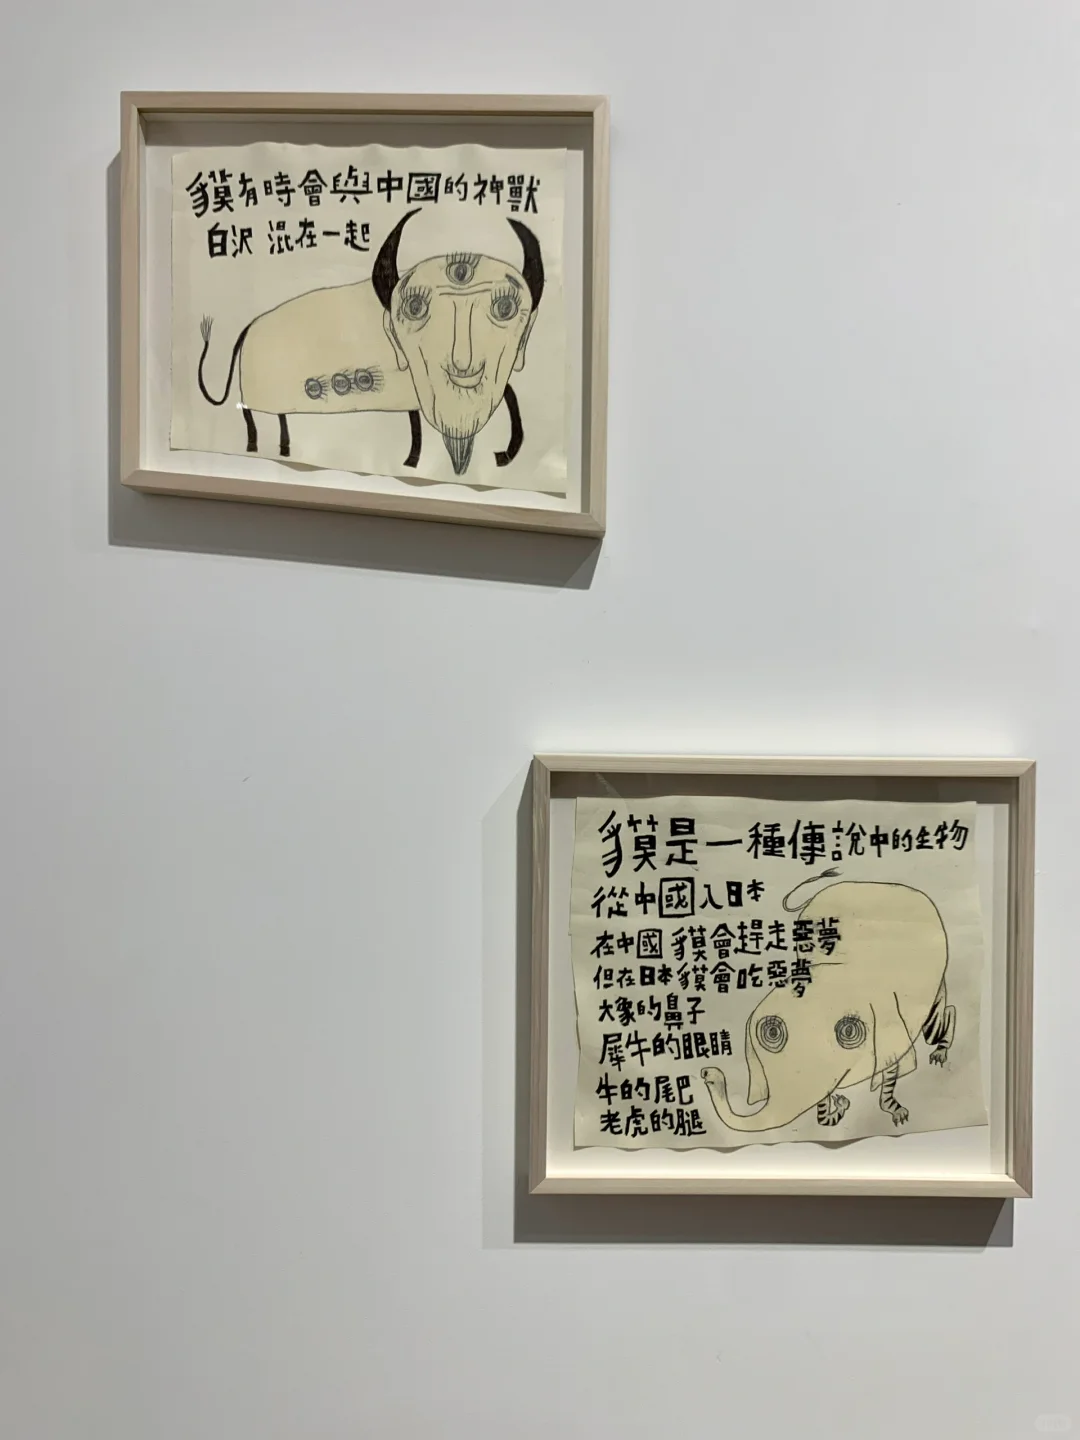 貘有時會與中國的神獸
白沢 混在一起
貘是一種傳說中的生物
從中國入日本
在中國 貘會趕走惡夢
但在日本貘會吃惡夢
大象的鼻子
犀牛的眼睛
牛的尾巴
老虎的腿